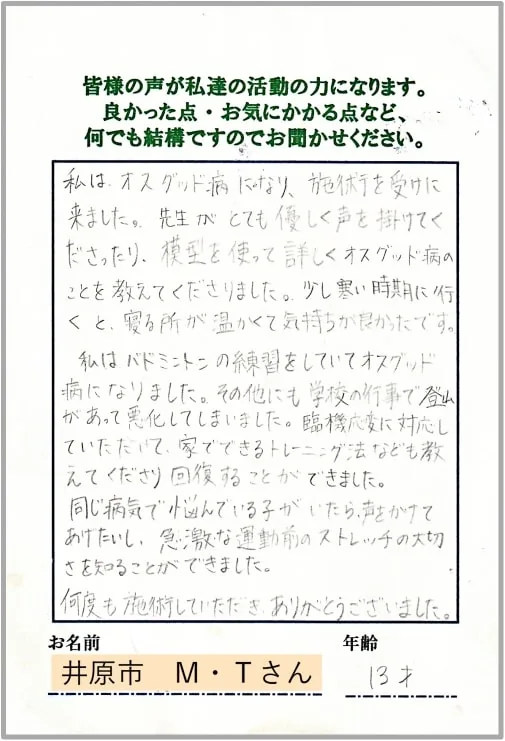 皆様の声が私達の活動の力になります。
良かった点・お気にかかる点など、
何でも結構ですのでお聞かせください。
私は、オスグッド病になり、施術を受けに
来ました。先生がとても優しく声を掛けてく
ださったり、模型を使って詳しくオスグッド病の
ことを教えてくださりました。少し寒い時期に行
くと、寝る所が温かくて気持ちが良かったです。
私はバドミントンの練習をしていてオスグッド
病になりました。その他にも学校の行事で登山
があって悪化してしまいました。臨機応変に対応し
ていただいて、家でできるトレーニング法なども教
えてくださり回復することができました。
同じ病気で悩んでいる子がいたら、声をかけて
あげたいし、急激な運動前のストレッチの大切
さを知ることができました。
何度も施術していただき、ありがとうございました。
お名前 年齢
井原市 M・Tさん 13才